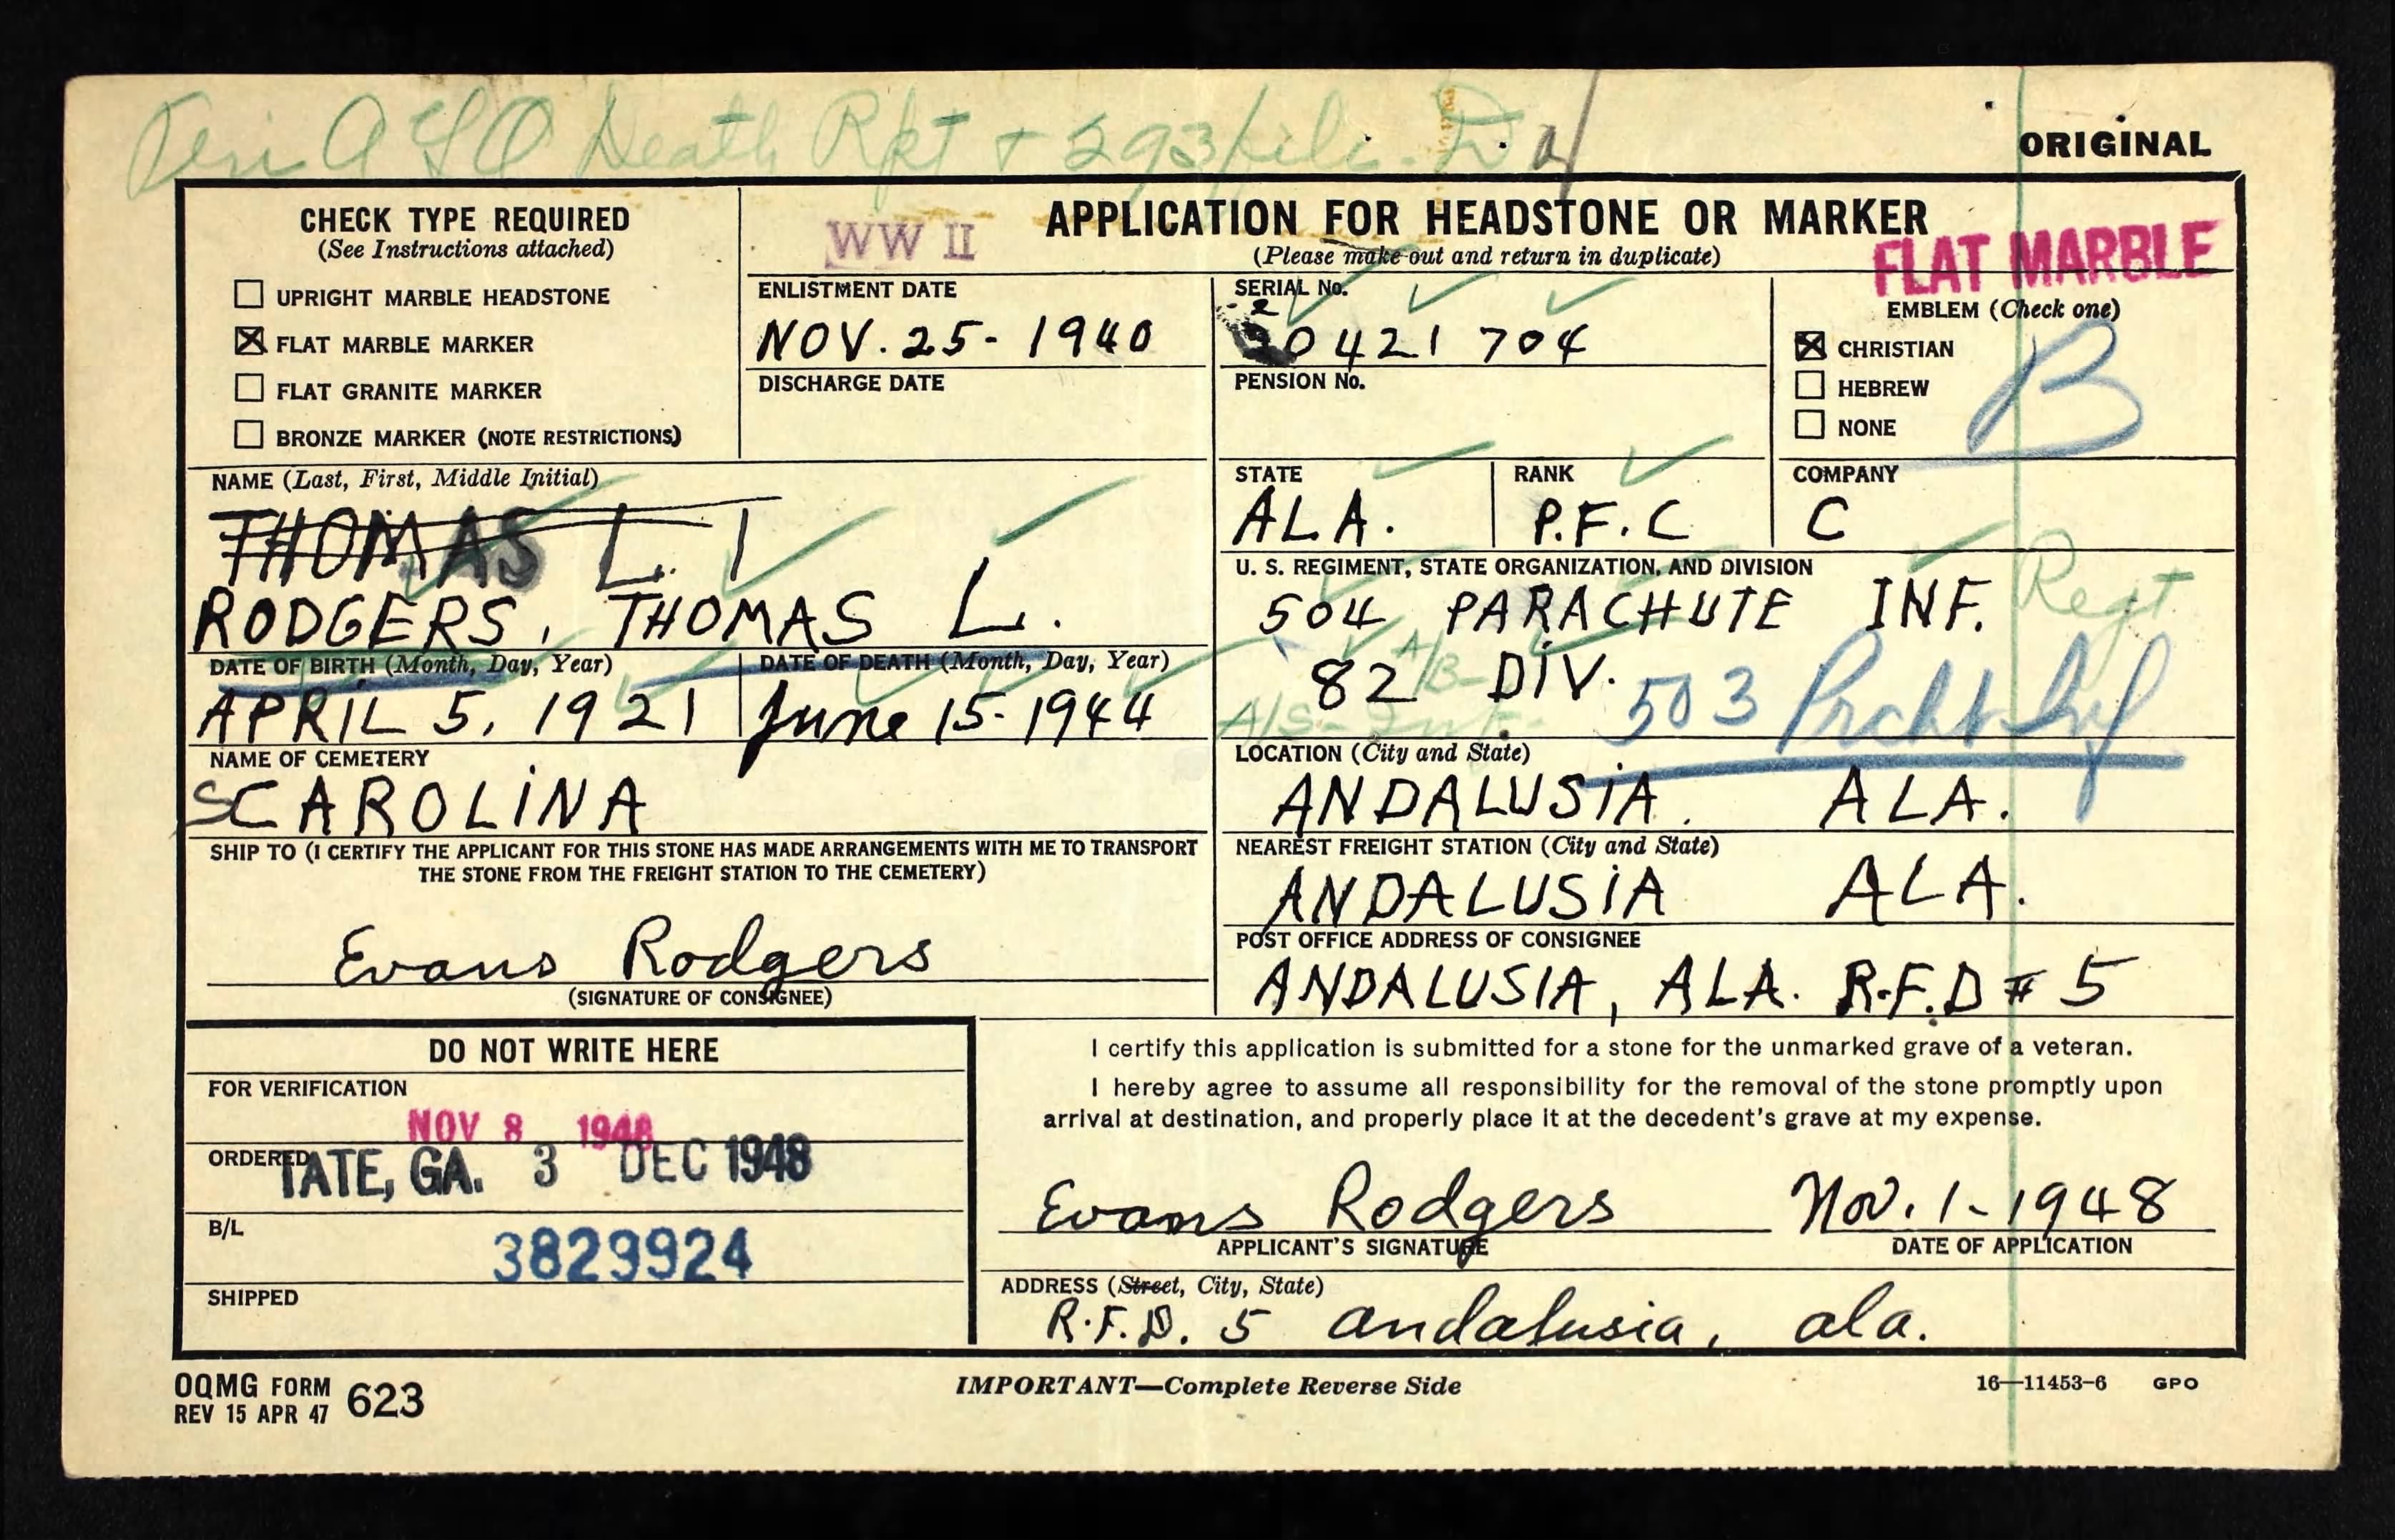 Death Rpt + 293 file.
ORIGINAL
CHECK TYPE REQUIRED
(See Instructions attached)
UPRIGHT MARBLE HEADSTONE
☒ FLAT MARBLE MARKER
FLAT GRANITE MARKER
BRONZE MARKER (NOTE RESTRICTIONS)
WW II
APPLICATION FOR HEADSTONE OR MARKER
(Please make out and return in duplicate)
FLAT MARBLE
ENLISTMENT DATE
NOV. 25- 1940
DISCHARGE DATE
SERIAL No.
20421 704
PENSION No.
EMBLEM (Check one)
☒ CHRISTIAN
HEBREW
NONE
B
NAME (Last, First, Middle Initial)
THOMAS L.
RODGERS, THOMAS L.
STATE
ALA.
RANK
P.F.C
COMPANY
C
U. S. REGIMENT, STATE ORGANIZATION, AND DIVISION
504 PARACHUTE INF. Regt
82 A/B DIV.
503 Prcht Inf
DATE OF BIRTH (Month, Day, Year)
APRIL 5, 1921
DATE OF DEATH (Month, Day, Year)
June 15-1944
NAME OF CEMETERY
SCAROLINA
LOCATION (City and State)
ANDALUSIA. ALA.
SHIP TO (I CERTIFY THE APPLICANT FOR THIS STONE HAS MADE ARRANGEMENTS WITH ME TO TRANSPORT
THE STONE FROM THE FREIGHT STATION TO THE CEMETERY)
Evans Rodgers
(SIGNATURE OF CONSIGNEE)
NEAREST FREIGHT STATION (City and State)
ANDALUSIA ALA.
POST OFFICE ADDRESS OF CONSIGNEE
ANDALUSIA, ALA. R.F.D # 5
DO NOT WRITE HERE
FOR VERIFICATION
NOV 8 1948
ORDERED
TATE, GA. 3 DEC 1948
B/L
3829924
SHIPPED
I certify this application is submitted for a stone for the unmarked grave of a veteran.
I hereby agree to assume all responsibility for the removal of the stone promptly upon
arrival at destination, and properly place it at the decedent's grave at my expense.
Evans Rodgers Nov. 1-1948
APPLICANT'S SIGNATURE DATE OF APPLICATION
ADDRESS (Street, City, State)
R.F.D. 5 andalusia, ala.
OQMG FORM 623
REV 15 APR 47
IMPORTANT—Complete Reverse Side
16—11453-6 GPO